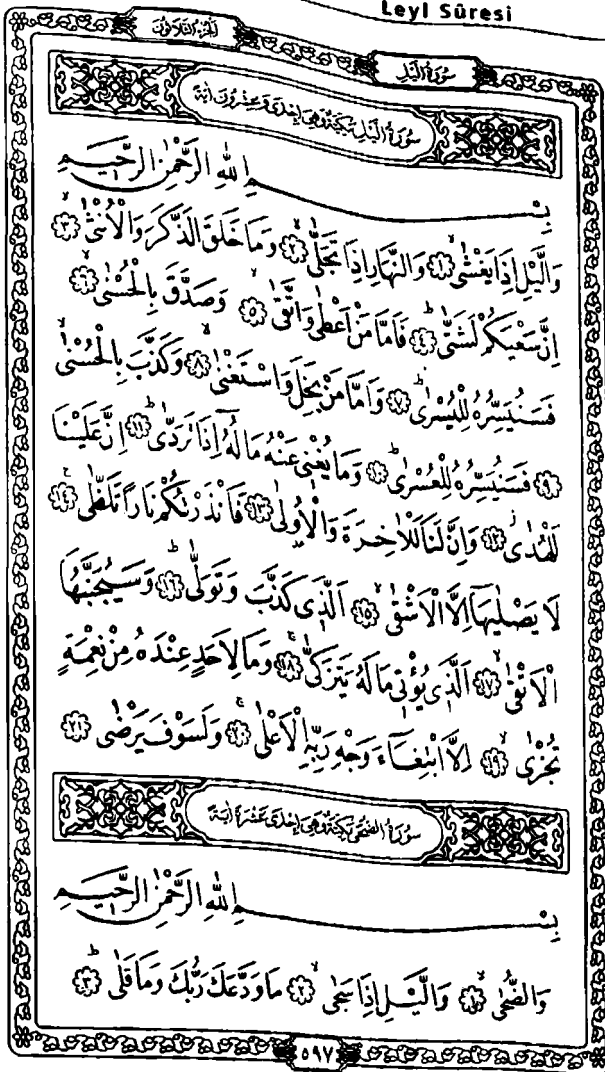 Leyl Sûresi
اَلْجُزْءُ الثَّلَاثُونَ
سُورَةُ الَّيْلِ
سُورَةُ الَّيْلِ مَكِّيَّةٌ وَهِيَ اِحْدٰى وَعِشْرُونَ اٰيَةً
بِسْــــمِ اللّٰهِ الرَّحْمٰنِ الرَّحِيمِ
وَالَّيْلِ اِذَا يَغْشٰىۙ ﴿١﴾ وَالنَّهَارِ اِذَا تَجَلّٰىۙ ﴿٢﴾ وَمَا خَلَقَ الذَّكَرَ وَالْاُنْثٰىۙ ﴿٣﴾
اِنَّ سَعْيَكُمْ لَشَتّٰىۜ ﴿٤﴾ فَاَمَّا مَنْ اَعْطٰى وَاتَّقٰىۙ ﴿٥﴾ وَصَدَّقَ بِالْحُسْنٰىۙ ﴿٦﴾
فَسَنُيَسِّرُهُ لِلْيُسْرٰىۜ ﴿٧﴾ وَاَمَّا مَنْ بَخِلَ وَاسْتَغْنٰىۙ ﴿٨﴾ وَكَذَّبَ بِالْحُسْنٰىۙ
﴿٩﴾ فَسَنُيَسِّرُهُ لِلْعُسْرٰىۜ ﴿١٠﴾ وَمَا يُغْنِي عَنْهُ مَالُهُٓ اِذَا تَرَدّٰىۜ ﴿١١﴾ اِنَّ عَلَيْنَا
لَلْهُدٰىۘ ﴿١٢﴾ وَاِنَّ لَنَا لَلْاٰخِرَةَ وَالْاُولٰى ﴿١٣﴾ فَاَنْذَرْتُكُمْ نَاراً تَلَظّٰىۚ ﴿١٤﴾
لَا يَصْلٰيهَٓا اِلَّا الْاَشْقٰىۙ ﴿١٥﴾ اَلَّذِي كَذَّبَ وَتَوَلّٰىۜ ﴿١٦﴾ وَسَيُجَنَّبُهَا
الْاَتْقٰىۙ ﴿١٧﴾ اَلَّذِي يُؤْتِي مَالَهُ يَتَزَكّٰىۚ ﴿١٨﴾ وَمَا لِاَحَدٍ عِنْدَهُ مِنْ نِعْمَةٍ
تُجْزٰىۙ ﴿١٩﴾ اِلَّا ابْتِغَٓاءَ وَجْهِ رَبِّهِ الْاَعْلٰىۚ ﴿٢٠﴾ وَلَسَوْفَ يَرْضٰى ﴿٢١﴾
سُورَةُ الضُّحٰى مَكِّيَّةٌ وَهِيَ اِحْدٰى عَشْرَةَ اٰيَةً
بِسْــــمِ اللّٰهِ الرَّحْمٰنِ الرَّحِيمِ
وَالضُّحٰىۙ ﴿١﴾ وَالَّيْلِ اِذَا سَجٰىۙ ﴿٢﴾ مَا وَدَّعَكَ رَبُّكَ وَمَا قَلٰىۜ ﴿٣﴾
٥٩٧